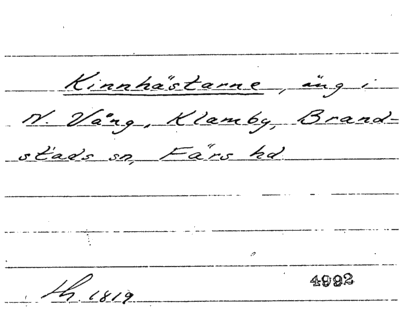 Kinnhästarne, äng i
N. Vång, Klamby, Brand-
stads sn, Färs hd
th. 1819
4992